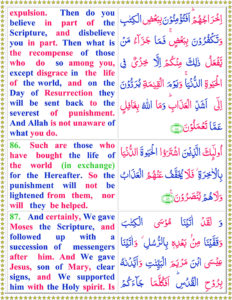 expulsion. Then do you
believe in part of the
Scripture, and disbelieve
you in part. Then what is
the recompense of those
who do so among you,
except disgrace in the life
of the world, and on the
Day of Resurrection they
will be sent back to the
severest of punishment.
And Allah is not unaware of
what you do.
86. Such are those who
have bought the life of
the world (in exchange)
for the Hereafter. So the
punishment will not be
lightened from them, nor
will they be helped.
87. And certainly, We gave
Moses the Scripture, and
followed up with a
succession of messengers
after him. And We gave
Jesus, son of Mary, clear
signs, and We supported
him with the Holy spirit. Is
اِخْرَاجُهُمْ اَفَتُؤْمِنُوْنَ بِبَعْضِ الْكِتٰبِ
وَتَكْفُرُوْنَ بِبَعْضٍ فَمَا جَزَآءُ مَنْ
يَّفْعَلُ ذٰلِكَ مِنْكُمْ اِلَّا خِزْيٌ فِى
الْحَيٰوةِ الدُّنْيَا وَيَوْمَ الْقِيٰمَةِ يُرَدُّوْنَ
اِلٰٓى اَشَدِّ الْعَذَابِ وَمَا اللّٰهُ بِغَافِلٍ
عَمَّا تَعْمَلُوْنَ
اُولٰٓئِكَ الَّذِيْنَ اشْتَرَوُا الْحَيٰوةَ الدُّنْيَا
بِالْاٰخِرَةِ فَلَا يُخَفَّفُ عَنْهُمُ الْعَذَابُ
وَلَا هُمْ يُنْصَرُوْنَ
وَ لَقَدْ اٰتَيْنَا مُوْسَى الْكِتٰبَ
وَقَفَّيْنَا مِنْ بَعْدِهٖ بِالرُّسُلِ وَ اٰتَيْنَا
عِيْسَى ابْنَ مَرْيَمَ الْبَيِّنٰتِ وَاَيَّدْنٰهُ
بِرُوْحِ الْقُدُسِ اَفَكُلَّمَا جَآءَكُمْ